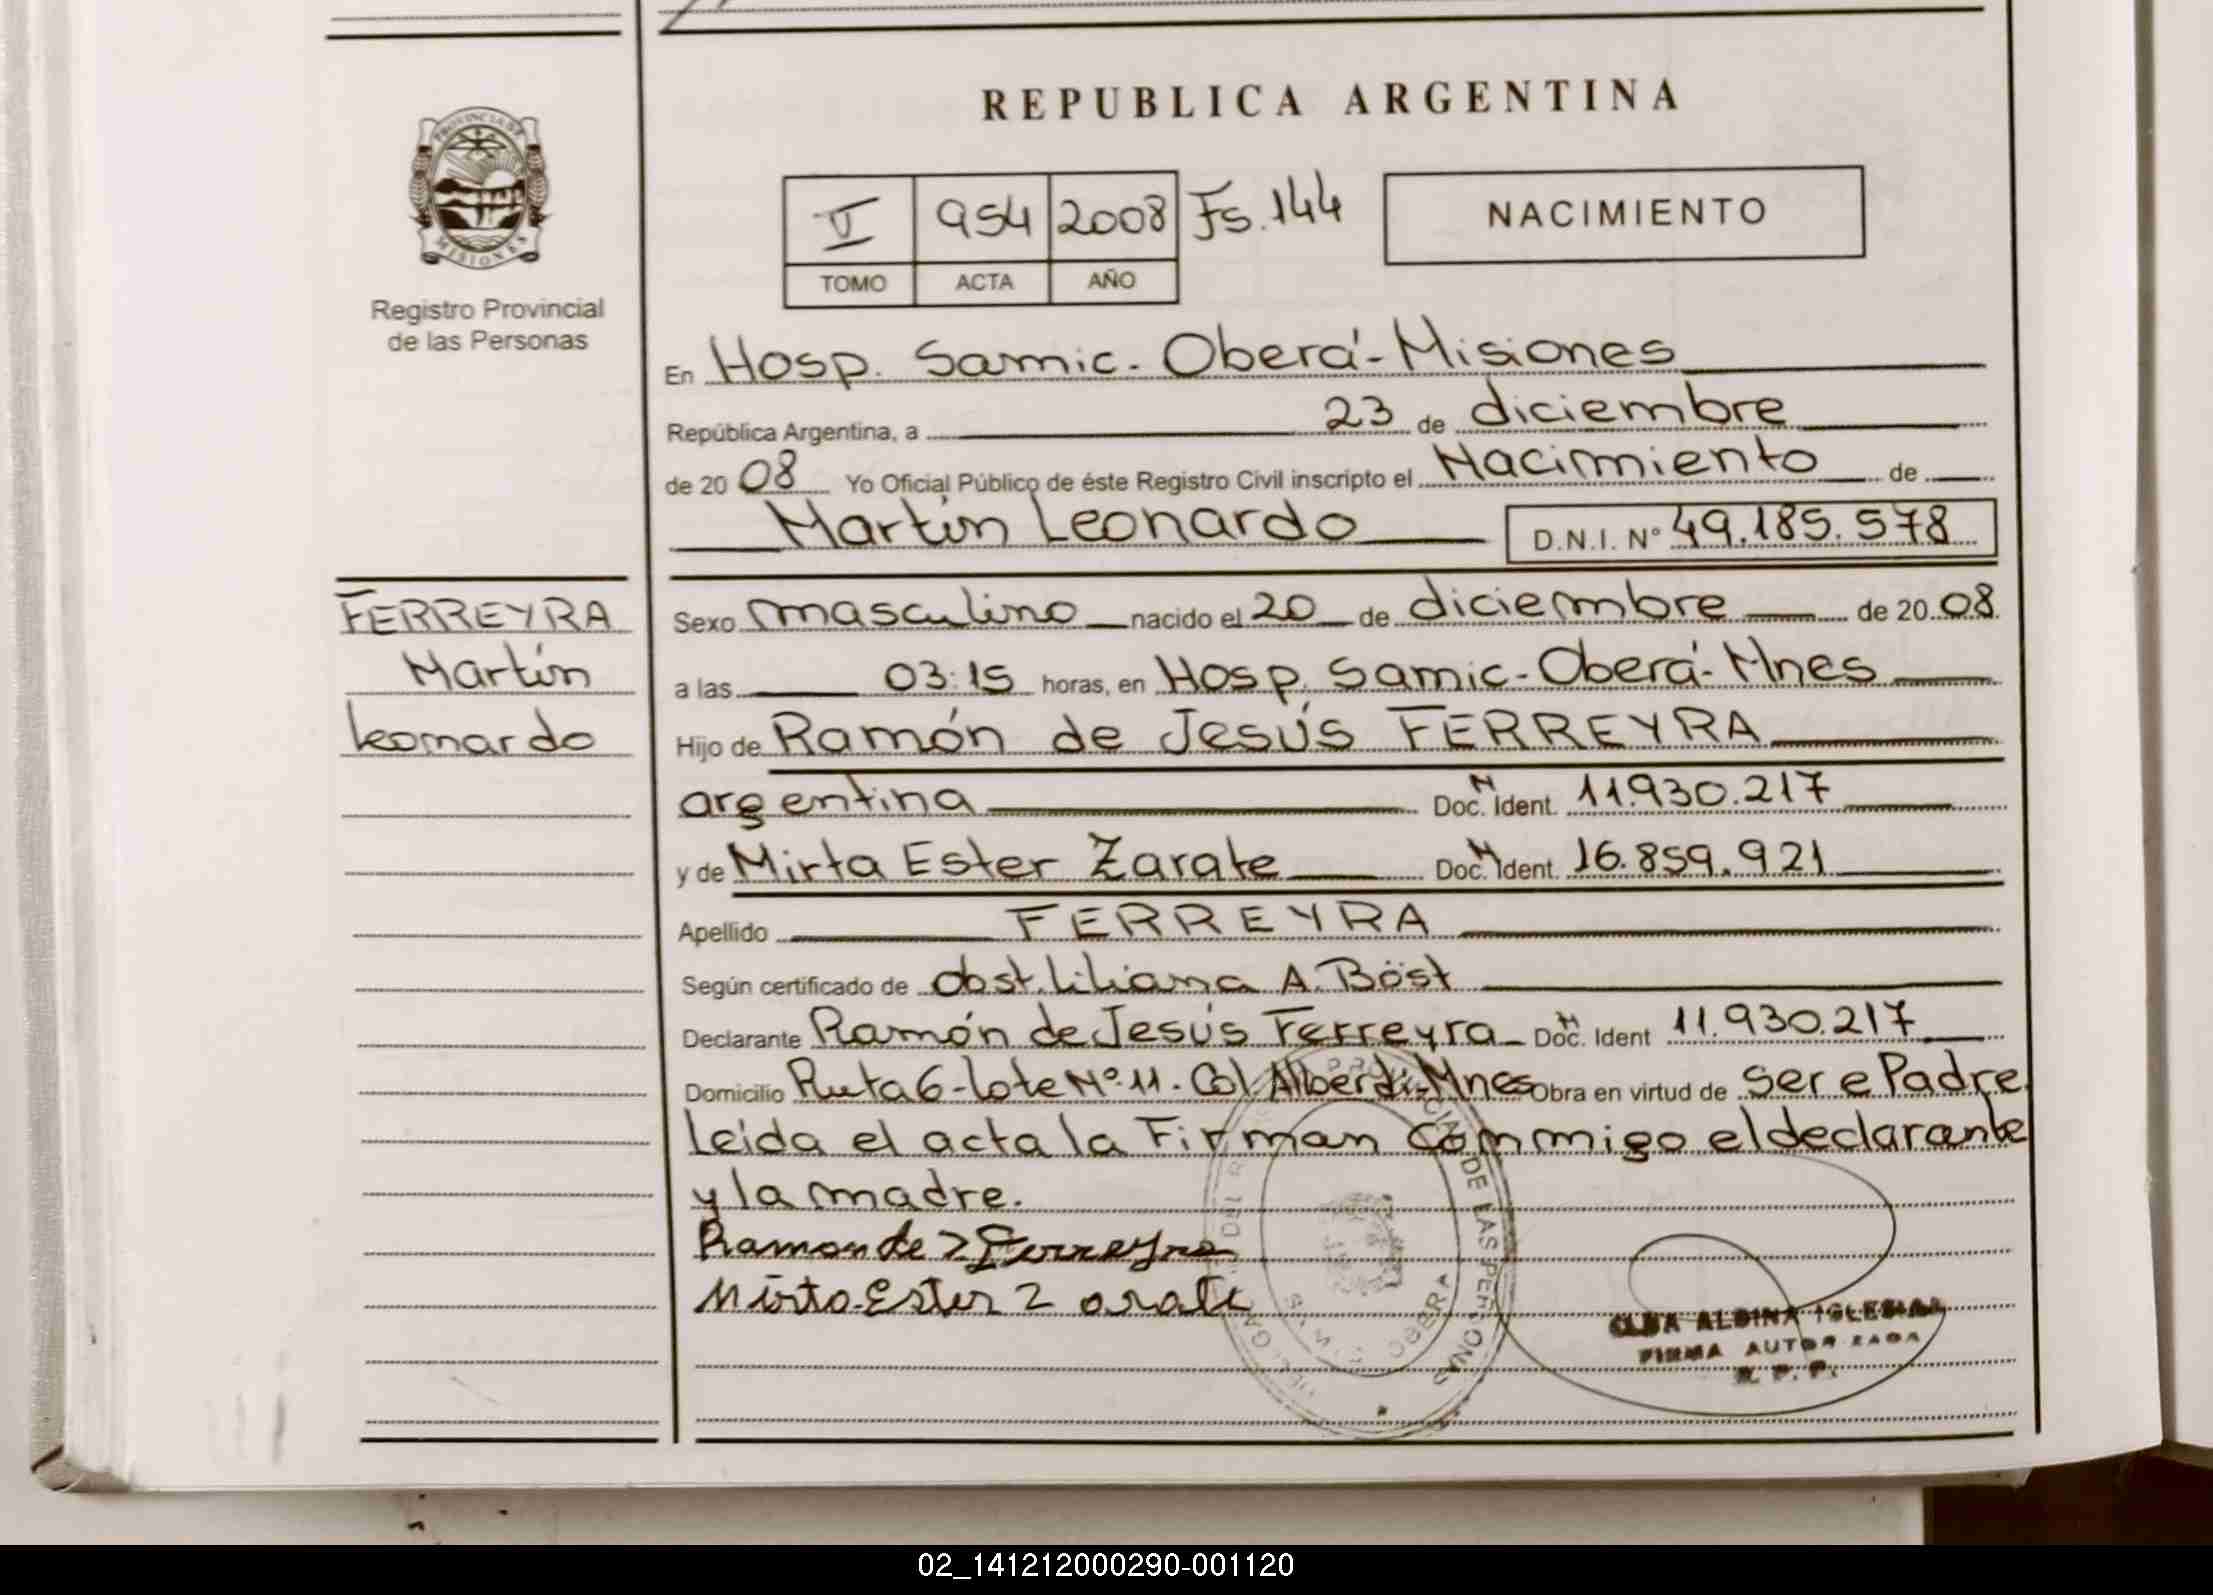 REPUBLICA ARGENTINA
PROVINCIA DE
MISIONES
Registro Provincial
de las Personas
V 954 2008 Fs. 144
TOMO ACTA AÑO
NACIMIENTO
En Hosp. Samic - Oberá - Misiones
República Argentina, a 23 de diciembre
de 20 08 Yo Oficial Público de éste Registro Civil inscripto el Nacimiento de
Martín Leonardo D.N.I. N° 49.185.578
FERREYRA
Martín
Leonardo
Sexo masculino nacido el 20 de diciembre de 20 08
a las 03:15 horas, en Hosp. Samic - Oberá - Mnes
Hijo de Ramón de Jesús FERREYRA
argentina Doc. N Ident. 11.930.217
y de Mirta Ester Zarate Doc. N Ident. 16.859.921
Apellido FERREYRA
Según certificado de Obst. Liliana A. Böst
Declarante Ramón de Jesús Ferreyra Doc. N Ident 11.930.217
Domicilio Ruta 6 - Lote N° 11 - Col. Alberdi - Mnes Obra en virtud de ser e Padre
Leída el acta la Firman conmigo el declarante
y la madre.
Ramon de J Ferreyra
Mirta Ester Zarate
DE LAS PERSONAS
OBERA
ALBINA IGLESIAS
FIRMA AUTORIZADA
R. P. P.
02_141212000290-001120